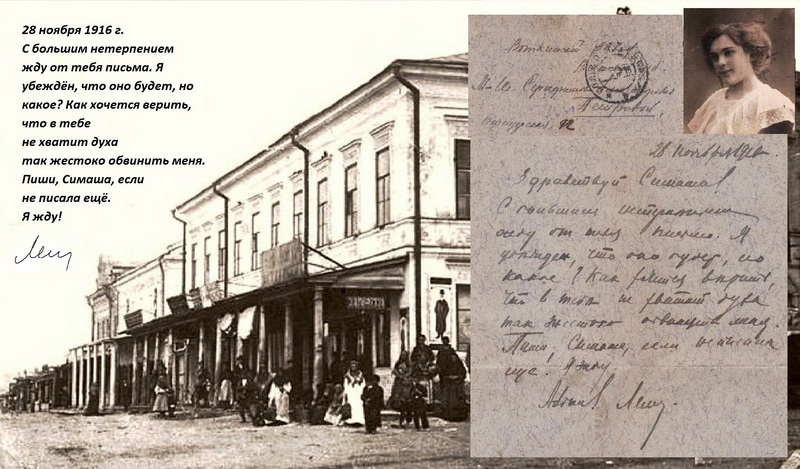 28 ноября 1916 г.
С большим нетерпением
жду от тебя письма. Я
убеждён, что оно будет, но
какое? Как хочется верить,
что в тебе
не хватит духа
так жестоко обвинить меня.
Пиши, Симаша, если
не писала ещё.
Я жду!
Воткинский завод
92
28 Ноября 1916.
Здравствуй Симаша!
С большим нетерпением
жду от тебя письма. Я
убежден, что оно будет, но
какое? Как хочется верить,
что в тебе не хватит духа
так жестоко обвинить меня.
Пиши, Симаша, если не писала
еще! Я жду.